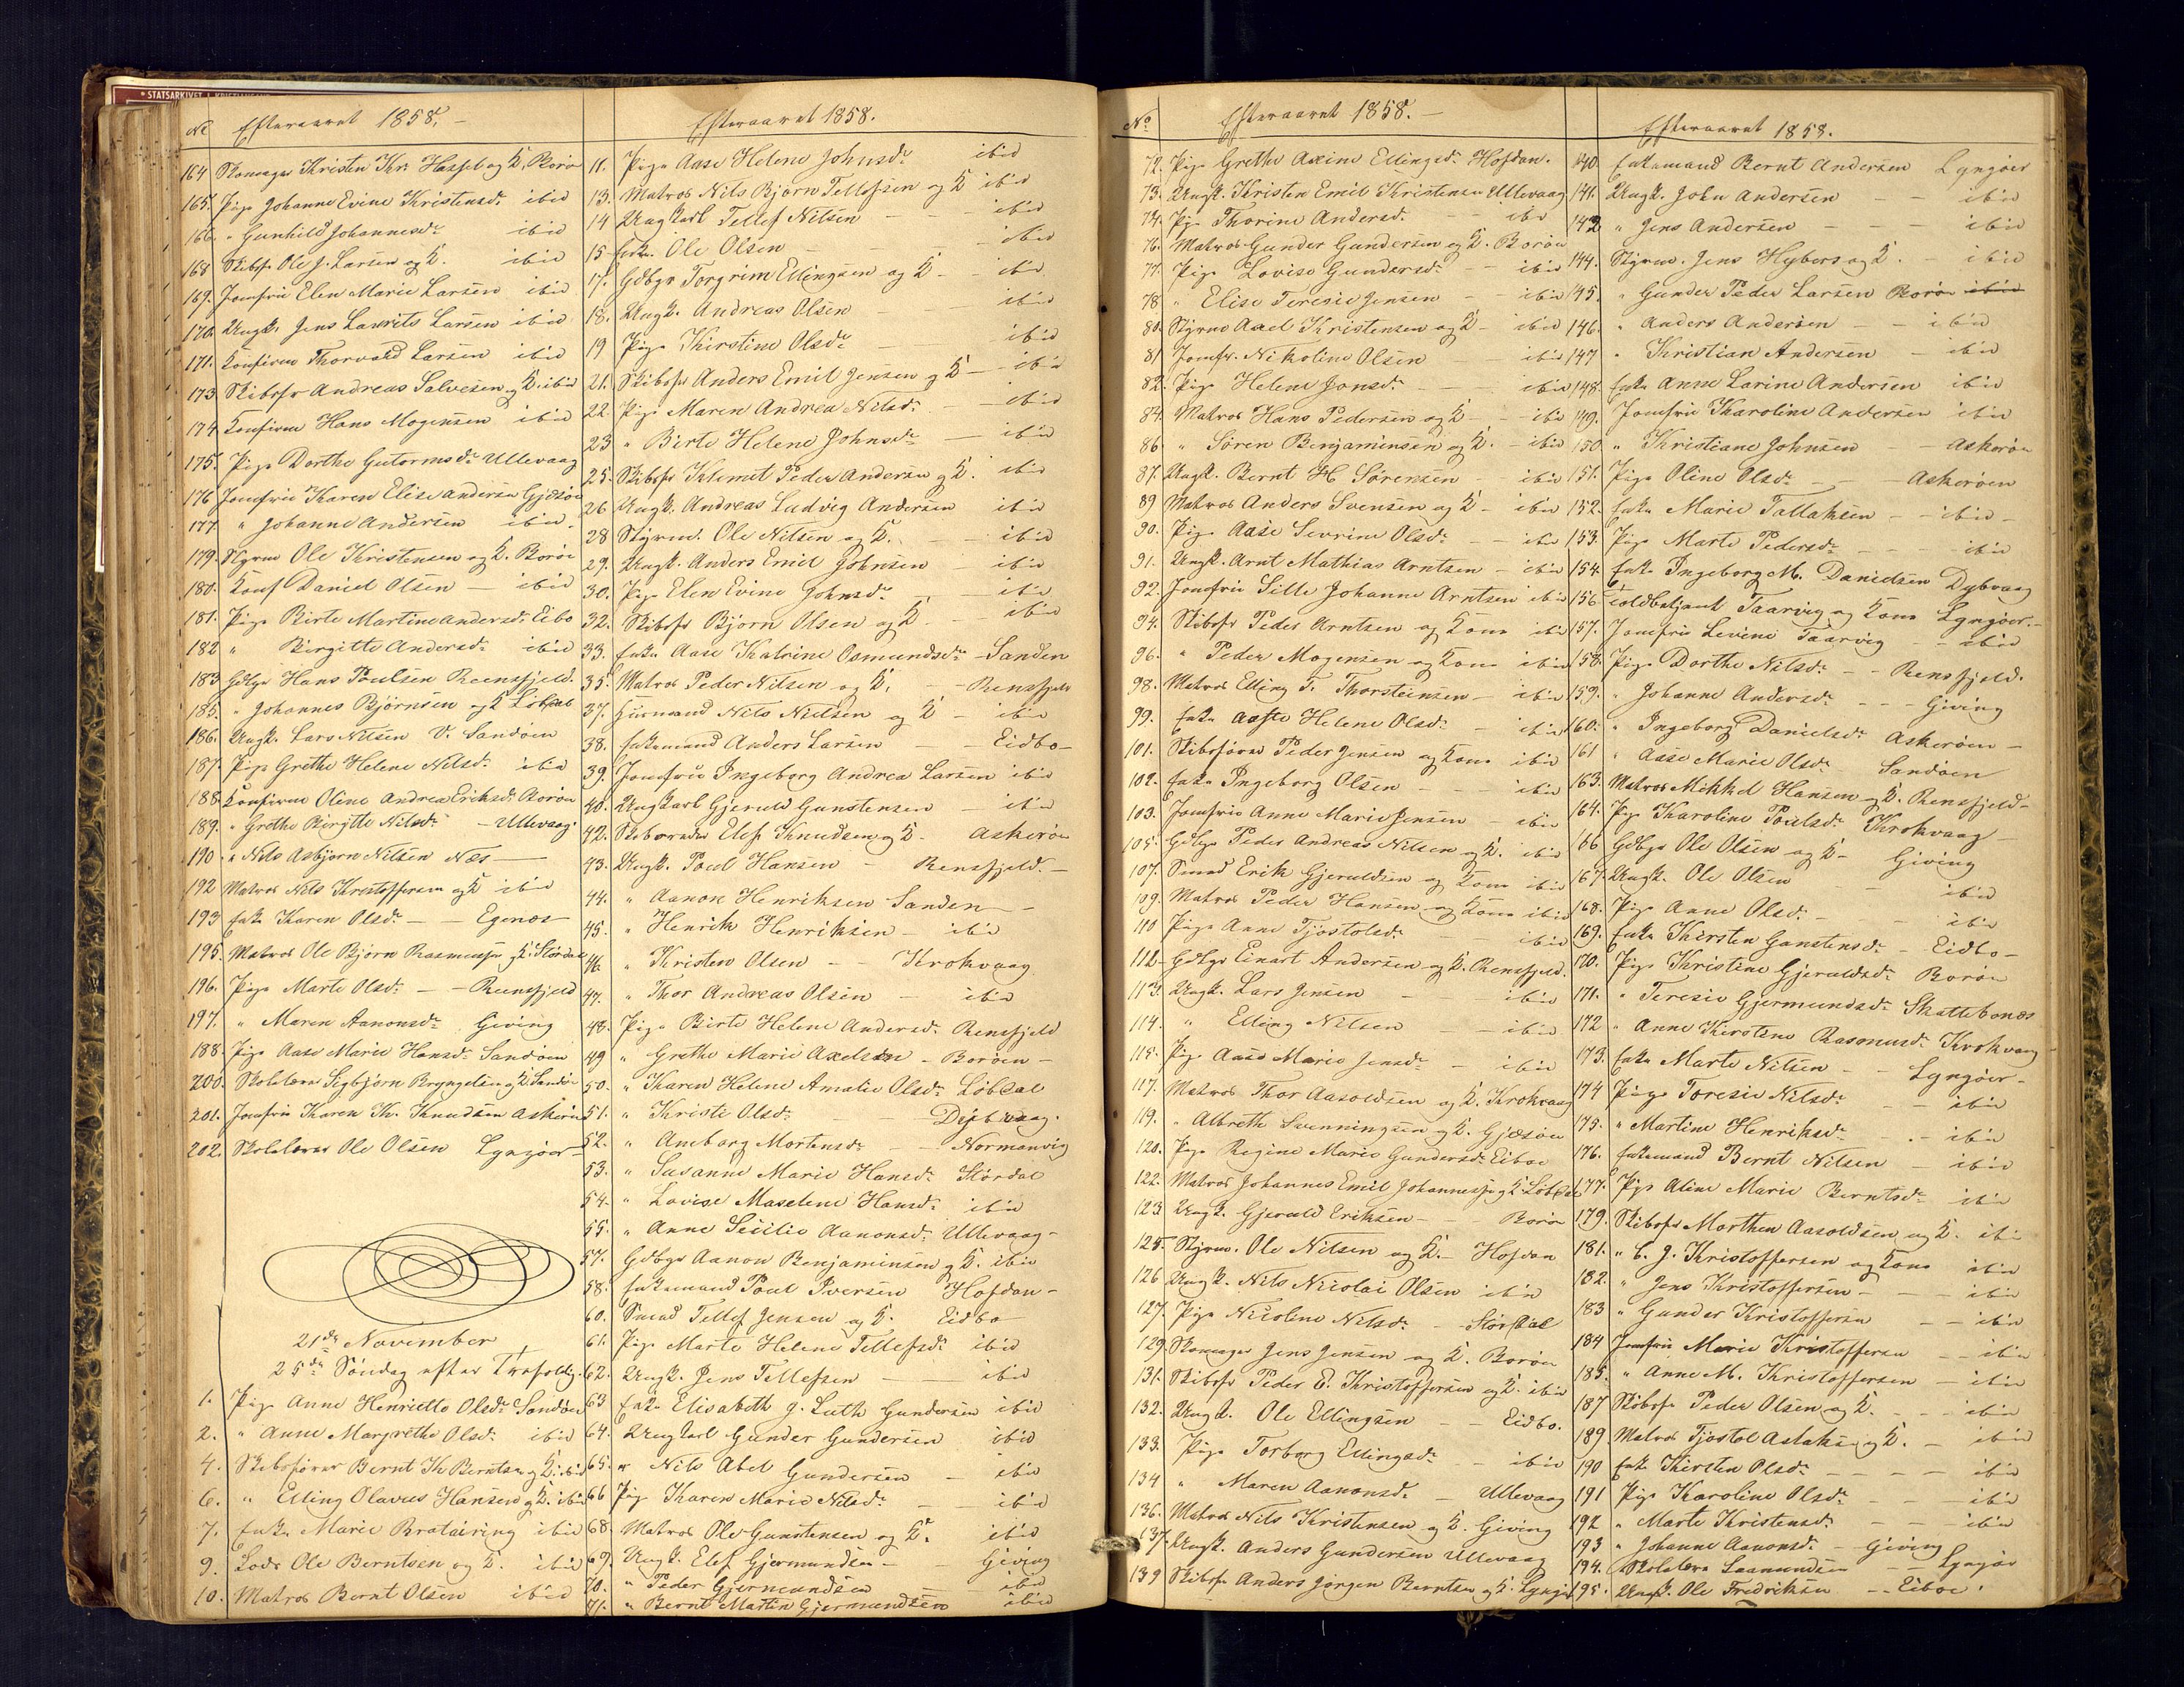 * STATSARKIVET I KRISTIANSAND
No Efteraaret 1858. –
164 Skomager Kristen Kr. Hassel og K. Borøe
165. Pige Johanne Evine Kristensdr ibid
166. " Gunhild Johannesdr ibid
168 Skibsf. Ole J. Larsen og K. ibid
169. Jomfru Elen Marie Larsen ibid
170. Ungk. Jens Laurits Larsen ibid
171. Konfirm Thorvald Larsen ibid
173 Skibsfr Andreas Salvesen og K. ibid
174 Konfirm Hans Mogensen ibid
175. Pige Dorthe Gutormsdr Ullevaag
176 Jomfru Karen Elise Andersen Gjæsøe
177 " Johanne Andersen ibid.
179. Styrm Ole Kristensen og K. Borøe
180. Konf Daniel Olsen – ibid
181. Pige Birte Martine Andersdr Eibo
182 " Birgitte Andersdr ibid
183 Gdbgr Hans Poulsen Reensfjeld.
185. " Johannes Bjørnsen og K Løbdal
186. Ungk. Lars Nilsen V. Sandøen
187. Pige Grethe Helene Nilsdr. ibid
188. Konfirm Oline Andrea Eriksdr Borøen
189. " Grethe Birgitte Nilsdr – Ullevaag
190 " Nils Asbjørn Nilsen Næs –
192 Matros Nils Kristoffersen og K ibid
193 Enke Karen Olsdr – – Egenæs
195. Matros Ole Bjørn Rasmussen og K. Størdal
196. Pige Marte Olsdr – – Reensfjeld
197. " Maren Aanonsdr Giving
188. Pige Aase Marie Hansdr Sandøen
200. Skolelærer Sigbjørn Bryngelsen og K. Sandøe
201. Jomfru Karen K. Knudsen Askerøe
202. Skolelærer Ole Olsen Lyngøer –
21de November
25de Søndag efter Trefoldig.
1. Pige Anne Henriette Olsdr Sandøen
2. " Anne Margrethe Olsdr ibid
4. Skibsfører Bernt K Berntsen og K. ibid
6. " Elling Olavus Hansen og K. ibid
7. Enke Marie Bratairing ibid
9. Lods Ole Berntsen og K. ibid
10. Matros Bernt Olsen ibid
Efteraaret 1858.
11. Pige Aase Helene Johnsdr ibid
13. Matros Nils Bjørn Tellefsen og K ibid
14 Ungkarl Tellef Nilsen – – ibid
15 Enkem. Ole Olsen – – – ibid
17. Gdbgr Torgrim Ellingsen og K – ibid
18. Ungk. Andreas Olsen ibid
19 Pige Kirstine Olsdr – ibid
21. Skibsfr Anders Emil Jensen og K – ibid
22. Pige Maren Andrea Nilsdr. – ibid
23 " Birte Helene Johnsdr – ibid
25. Skibsfr Klemet Peder Andersen og K. ibid
26 Ungk. Andreas Ludvig Andersen ibid
28 Styrm. Ole Nilsen og K. – ibid
29. Ungk. Anders Emil Johnsen – ibid
30. Pige Elen Evine Johnsdr – ibid
32. Skibsfr Bjørn Olsen og K. – ibid
33. Enke Aase Katrine Osmundsdr – Sanden
35. Matros Peder Nilsen og K. – Rensfjeld
37. Huusmand Nils Nielsen og K – ibid
38. Enkemand Anders Larsen – – Eidbo –
39. Jomfru Ingeborg Andrea Larsen ibid
40. Ungkarl Gjeruld Gunstensen – ibid
42. Skibsreder Elef Knudsen og K. Askerøe
43. Ungk. Poul Hansen – Rensfjeld. –
44. " Aanon Henriksen Sanden –
45. " Henrik Henriksen – ibid
46. " Kristen Olsen – – Krokvaag
47. " Thor Andreas Olsen – ibid
48. Pige Birte Helene Andersdr. Rensfjeld
49 " Grethe Marie Axelsen – Borøen –
50. " Karen Helene Amalie Olsdr Løbdal
51. " Kristi Olsdr – Dybvaag.
52. " Aneborg Mortensdr – Normanvig
53. " Susanne Marie Hansdr Størdal
54. " Lovise Maselene Hansdr. ibid
55. " Anne Sesilie Aanonsdr. Ullevaag –
57. Gdbgr Aanon Benjaminsen og K. ibid
58. Enkemand Poul Iversen Hofdan –
60. Smed Tellef Jensen og K. Eidbo
61. Pige Marte Helene Tellefsdr ibid
62. Ungk. Jens Tellefsen – ibid
63 Enke Elisabeth J. Luth Gundersen ibid
64. Ungkarl Gunder Gundersen ibid
65. " Nils Abel Gundersen – ibid
66 Pige Karen Marie Nilsdr. – ibid
68. Matros Ole Gunstensen og K. ibid
69. Ungk. Elef Gjermundsen – Giving
70. " Peder Gjermundsen ibid
71. " Bernt Martin Gjermundsen ibid
No Efteraaret 1858. –
72. Pige Grethe Axine Ellingsdr Hofdan.
73. Ungk. Kristen Emil Kristensen Ullevaag
74. Pige Thorine Andersdr. – ibid
76. Matros Gunder Gundersen og K. Borøen
77. Pige Lovise Gundersdr – – ibid
78. " Elise Teresie Jensen – – ibid
80. Styrm Axel Kristensen og K – ibid
81 Jomfr. Nikoline Olsen – ibid
82. Pige Helene Jonsdr. – – ibid
84. Matros Hans Pedersen og K – – ibid
86. " Søren Benjaminsen og K. – ibid
87. Ungk. Bernt H Sørensen – ibid
89 Matros Anders Svensen og K – ibid
90. Pige Aase Severine Olsdr – – ibid
91. Ungk. Arnt Mathias Arntsen – ibid
92. Jomfru Sille Johanne Arntsen ibid
94. Skibsfr Peder Arntsen og Kone ibid
96. " Peder Mogensen og Kone ibid
98. Matros Elling T. Thorsteinsen – ibid
99. Enke Aaste Helene Olsdr – ibid
101. Skibsfører Peder Jensen og Kone ibid
102. Enke Ingeborg Olsen – – – ibid
103. Jomfru Anne Marie Jensen – ibid
105. Gdbgr Peder Andreas Nilsen og K. ibid
107. Smed Erik Gjeruldsen og Kone ibid
109. Matros Peder Hansen og Kone ibid
110 Pige Anne Tjøstolsdr – ibid
112 Gdbgr Einart Andersen og K. Rensfjeld.
113. Ungk. Lars Jensen – – ibid
114. " Elling Nilsen – – ibid
115. Pige Aase Marie Jensdr. – ibid
117. Matros Thor Aasoldsen og K. Krokvaag
119. " Albreth Svenningsen og K. Gjæsøen
120. Pige Regine Marie Gundersdr Eiboe
122. Matros Johannes Emil Johannessen og K. Løbdal
123. Ungk. Gjeruld Eriksen – – Borøe
125. Styrm. Ole Nilsen og K. – Hofdan
126 Ungk. Nils Nicolai Olsen ibid
127. Pige Nicoline Nilsdr. – Størdal
129. Skomager Jens Jensen og K. Borøen
131. Skibsfr Peder E. Kristoffersen og K. ibid
132. Ungk. Ole Ellingsen – – Eidbo.
133. Pige Torborg Ellingsdr – – ibid
134 " Maren Aanonsdr – Ullevaag
136. Matros Nils Kristensen og K. Giving
137. Ungk. Anders Gundersen Ullevaag
139 Skibsfr Anders Jørgen Berntsen og K. Lyngør
Efteraaret 1858.
140. Enkemand Bernt Andersen Lyngøer
141. Ungk. John Andersen – – ibid
142 " Jens Andersen – – – ibid
144. Styrm. Jens Hybers og K. – ibid
145. " Gunder Peder Larsen Borøe ibid
146. " Anders Andersen – – ibid
147 " Kristian Andersen – ibid
148. Enke Anne Larine Andersen ibid
149. Jomfru Karoline Andersen ibid
150 " Kristiane Johnsen – Askerøe
151. Pige Oline Olsdr – – Askerøen
152. Enke Marie Tallaksen – – ibid –
153. Pige Marte Pedersdr – – ibid
154 Enke Ingeborg M. Danielsen Dybvaag
156 Toldbetjent Taarvig og Kone Lyngøer. –
157. Jomfru Levine Taarvig – ibid
158. Pige Dorthe Nilsdr – – Rensfjeld.
159. " Johanne Andersdr – – – Giving
160. " Ingeborg Danielsdr Askerøen –
161 " Aase Marie Olsdr Sandøen
163. Matros Mikkel Hansen og K. Rensfjeld –
164. Pige Karoline Poulsdr Krokvaag
166 Gdbgr Ole Olsen og K – Giving
167. Ungk. Ole Olsen – ibid
168. Pige Anne Olsdr. – – ibid
169. Enke Kirsten Gunstensdr – Eidbo –
170. Pige Kristine Gjeruldsdr Borøe
171. " Teresie Gjermundsdr Skattebonæs
172 " Anne Kirstine Rasmusdr Krokvaag
173. Enke Marte Nilsen – – Lyngøer –
174 Pige Toresie Nilsdr – – ibid
175. " Martine Henriksdr – ibid
176. Enkemand Bernt Nilsen – ibid
177. Pige Aline Marie Berntsdr ibid
179. Skibsfr Morthen Aasoldsen og K. ibid
181. " C. J. Kristoffersen og Kone ibid
182. " Jens Kristoffersen – – ibid
183 " Gunder Kristoffersen – – ibid
184 Jomfru Marie Kristoffersen – – ibid
185. " Anne M. Kristoffersen – ibid
187 Skibsfr Peder Olsen og K. – – ibid
189. Matros Tjøstol Aslaksen og K. – ibid
190 Enke Kirsten Olsdr – – – – ibid
191 Pige Karoline Olsdr – – ibid
192 " Marte Kristensdr – – ibid
193 " Johanne Aanonsdr – Giving
194. Skolelærer Saamundsen – Lyngør
195. Ungk. Ole Fredriksen – – Eiboe.